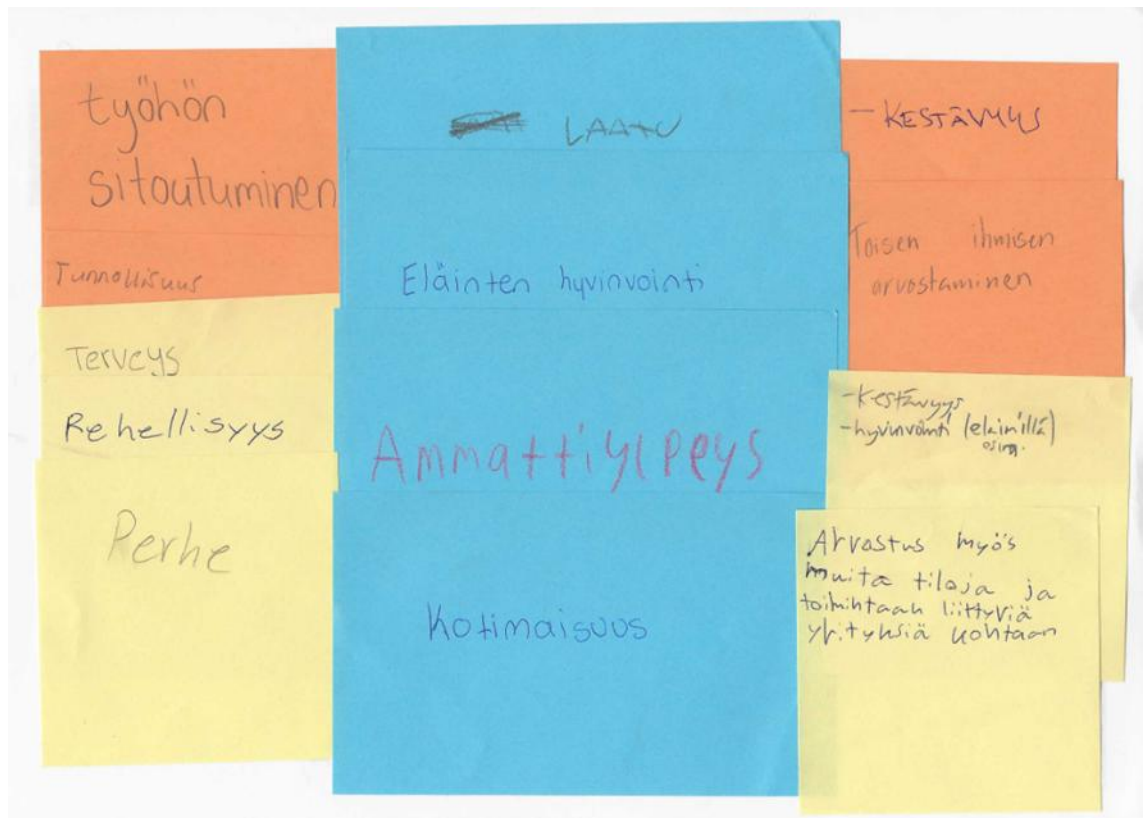 työhön
sitoutuminen
Tunnollisuus
Terveys
Rehellisyys
Perhe
LAATU
Eläinten hyvinvointi
Ammattiylpeys
Kotimaisuus
- KESTÄVYYS
Toisen ihmisen
arvostaminen
- Kestävyys
- hyvinvointi (eläimillä)
Arvostus myös
muita tiloja ja
toimintaan liittyviä
yrityksiä kohtaan